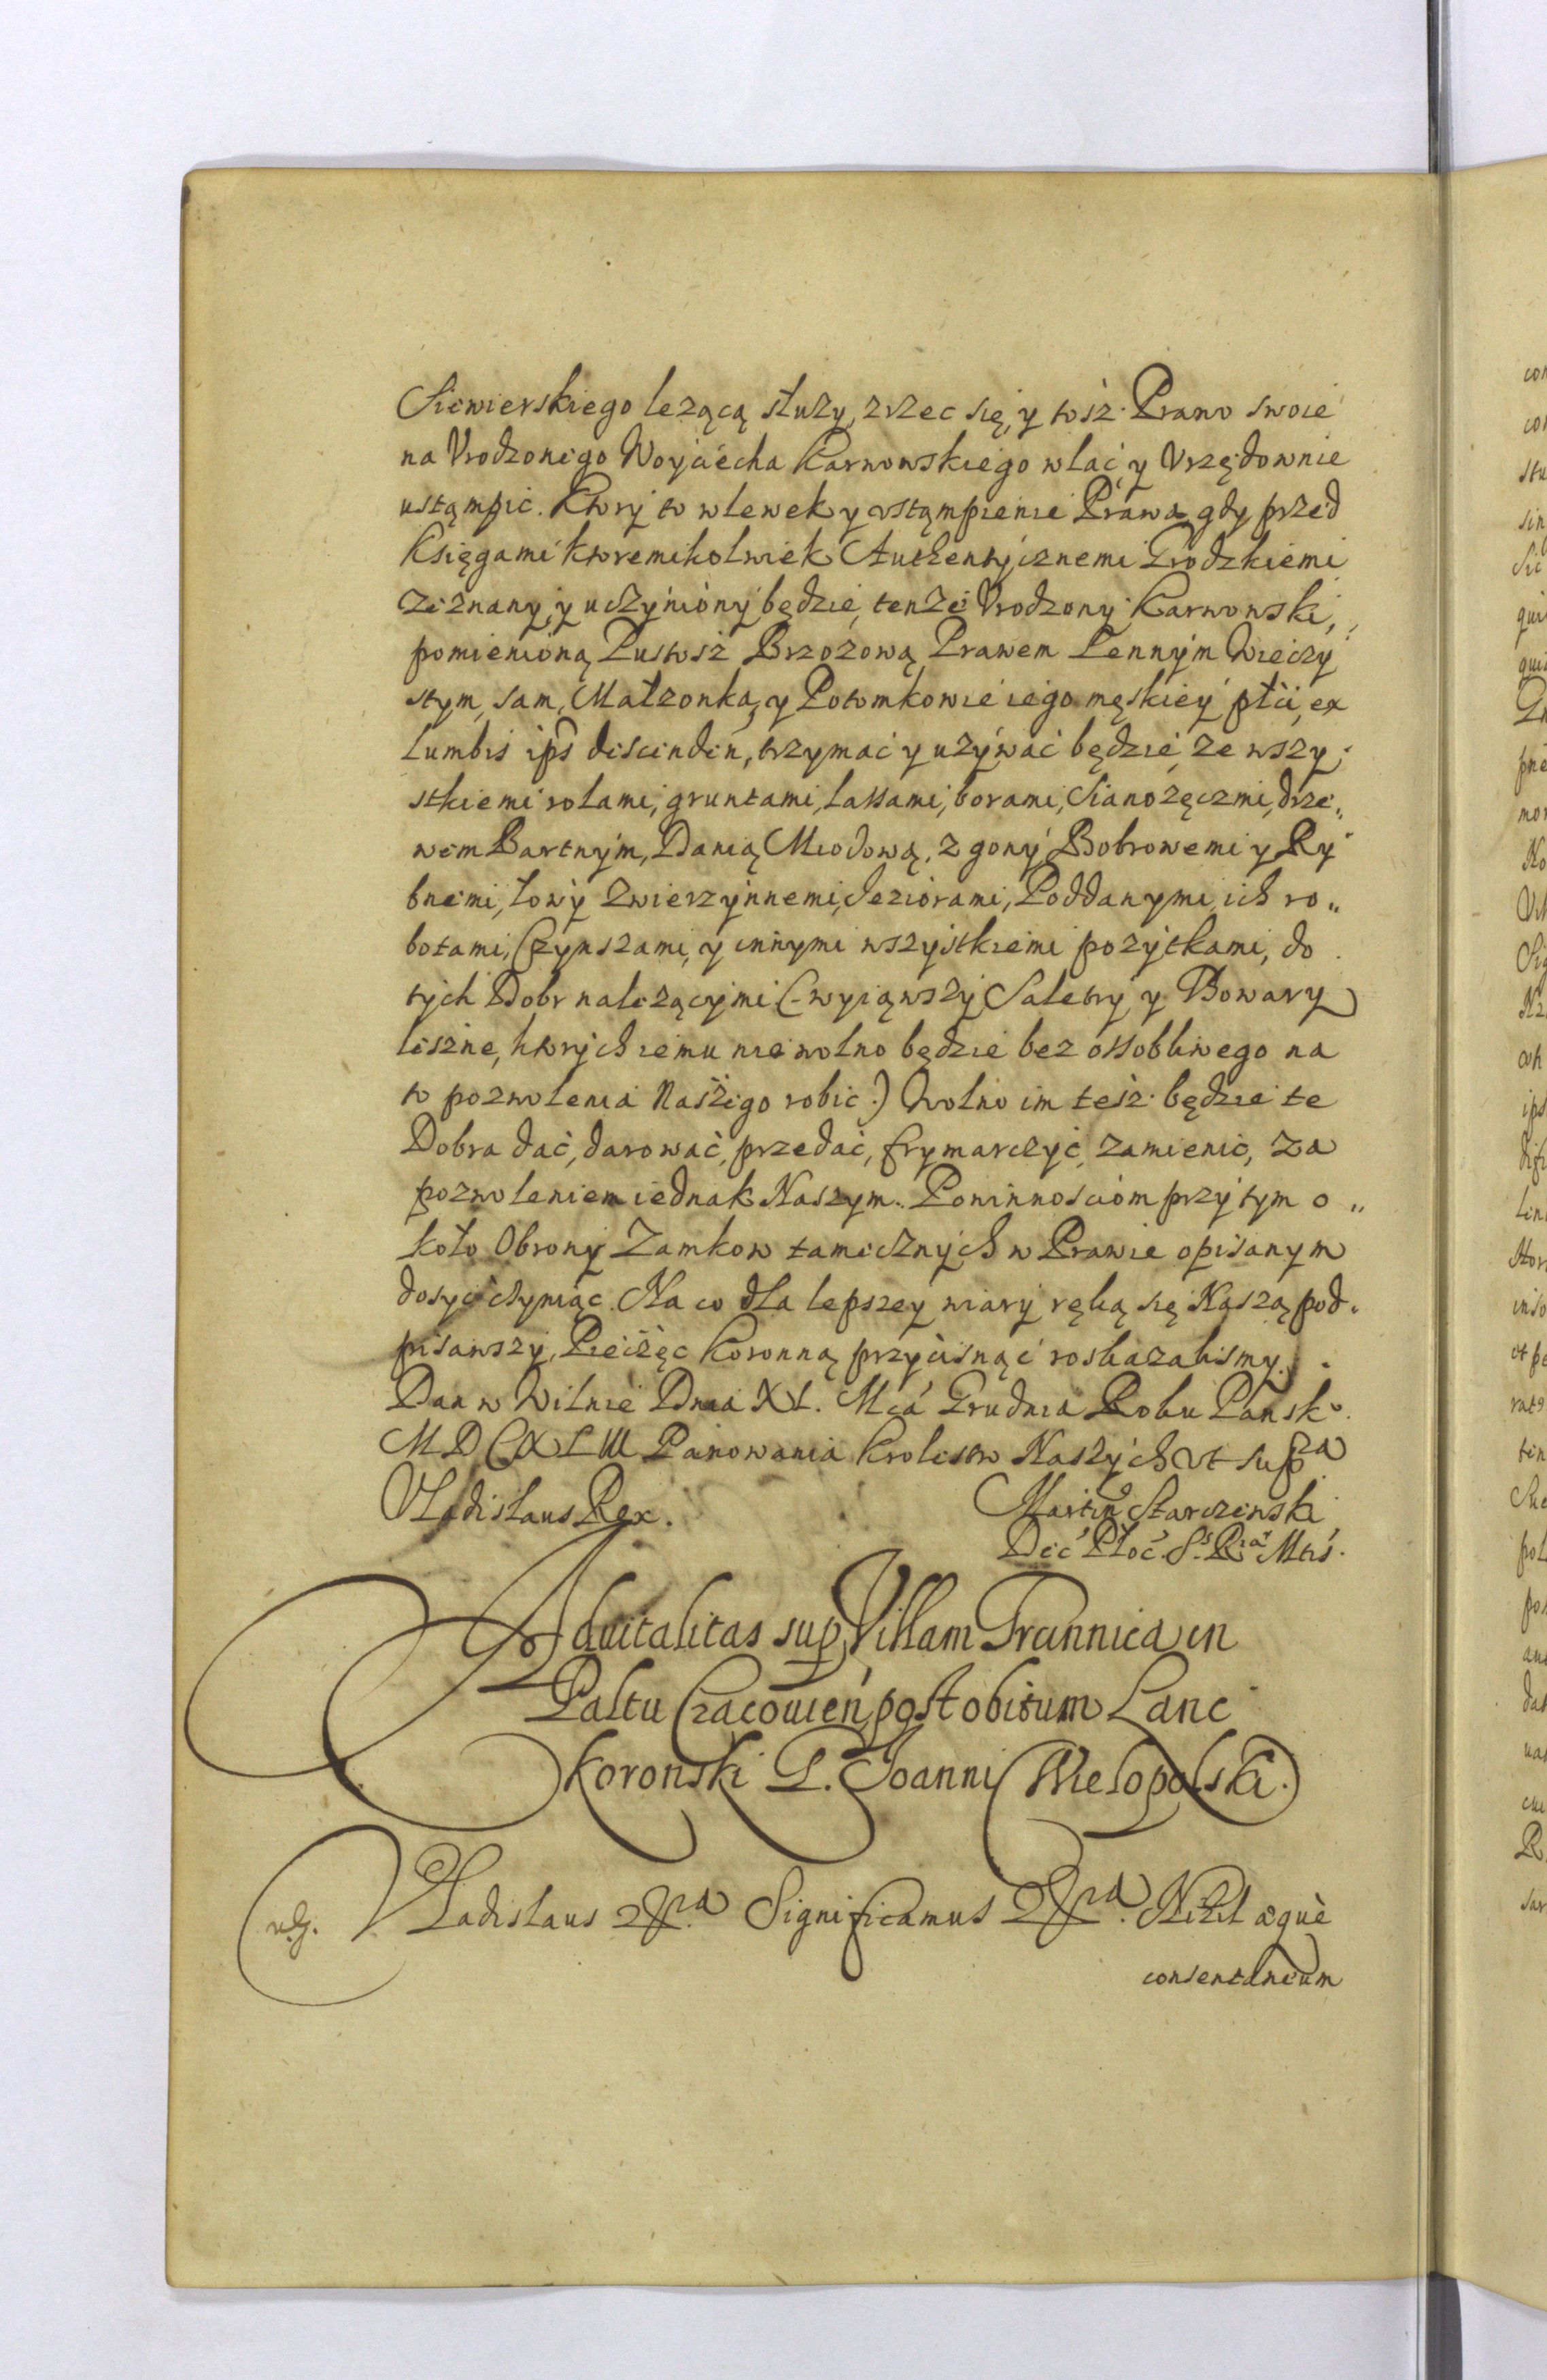 Siewierskiego lezącą służy, zrzec się, y tosz Prawo swoie
na Vrodzonego Woyciecha Karwowskiego wlać y Vrzędownie
ustąmpic. Ktory to wlewek y vstąmpienie Prawa gdy przed
Księgami ktoremikolwiek Authentycznemi Grodzkiemi
zeznany, y uczyniony będzie, tenze Vrodzony Karwowski,
pomienioną Pustosz Brzozową Prawem Lennym Wieczy
stym, sam, Małzonka, y Potomkowie iego męskiey płci, ex
lumbis ips descenden, trzymać y uzywać będzie, ze wszy
stkiemi rolami, gruntami, lassami, borami, Sianożęczmi, drze„
wem Bartnym, Danią Miodową, zgony Bobrowemi y Ry
bnemi, łowy Zwierzynnemi, Jeziorami, Poddanymi, ich ro„
botami, Czynszami, y innymi wszystkiemi pozytkami, do
tych Dobr nalezącymi (wyiąwszy Saletry y Bowary
leszne, ktorych iemu nie wolno będzie bez ossobliwego na
to pozwolenia Naszego robic.) Wolno im tesz będzie te
Dobra dać, darować, przedać, frymarczyć, zamienic, za
pozwoleniem iednak Naszym. Powinnosciom przytym o„
koło Obrony Zamkow tamecznych w Prawie opisanym
dosyc czyniąc. Na co dla lepszey wiary ręką się Naszą pod„
pisawszy, Pieczęc Koronną przycisnąć roskazalismy.
Dan w Wilnie Dnia XI. Mca Grudnia Roku Pansko.
MDCXLIII Panowania Krolestw Naszych vt supra
Vladislaus Rex.
Martin Starczewski
Dec Płoc. Ss Ra Mtis.
Advitalitas sup Villam Trunnica in
Paltu Cracovien, post obitum Lanc
koronski G. Joanni Wielopolski.
Vladislaus &ra Significamus &ra. Nihil æquè
consentaneum